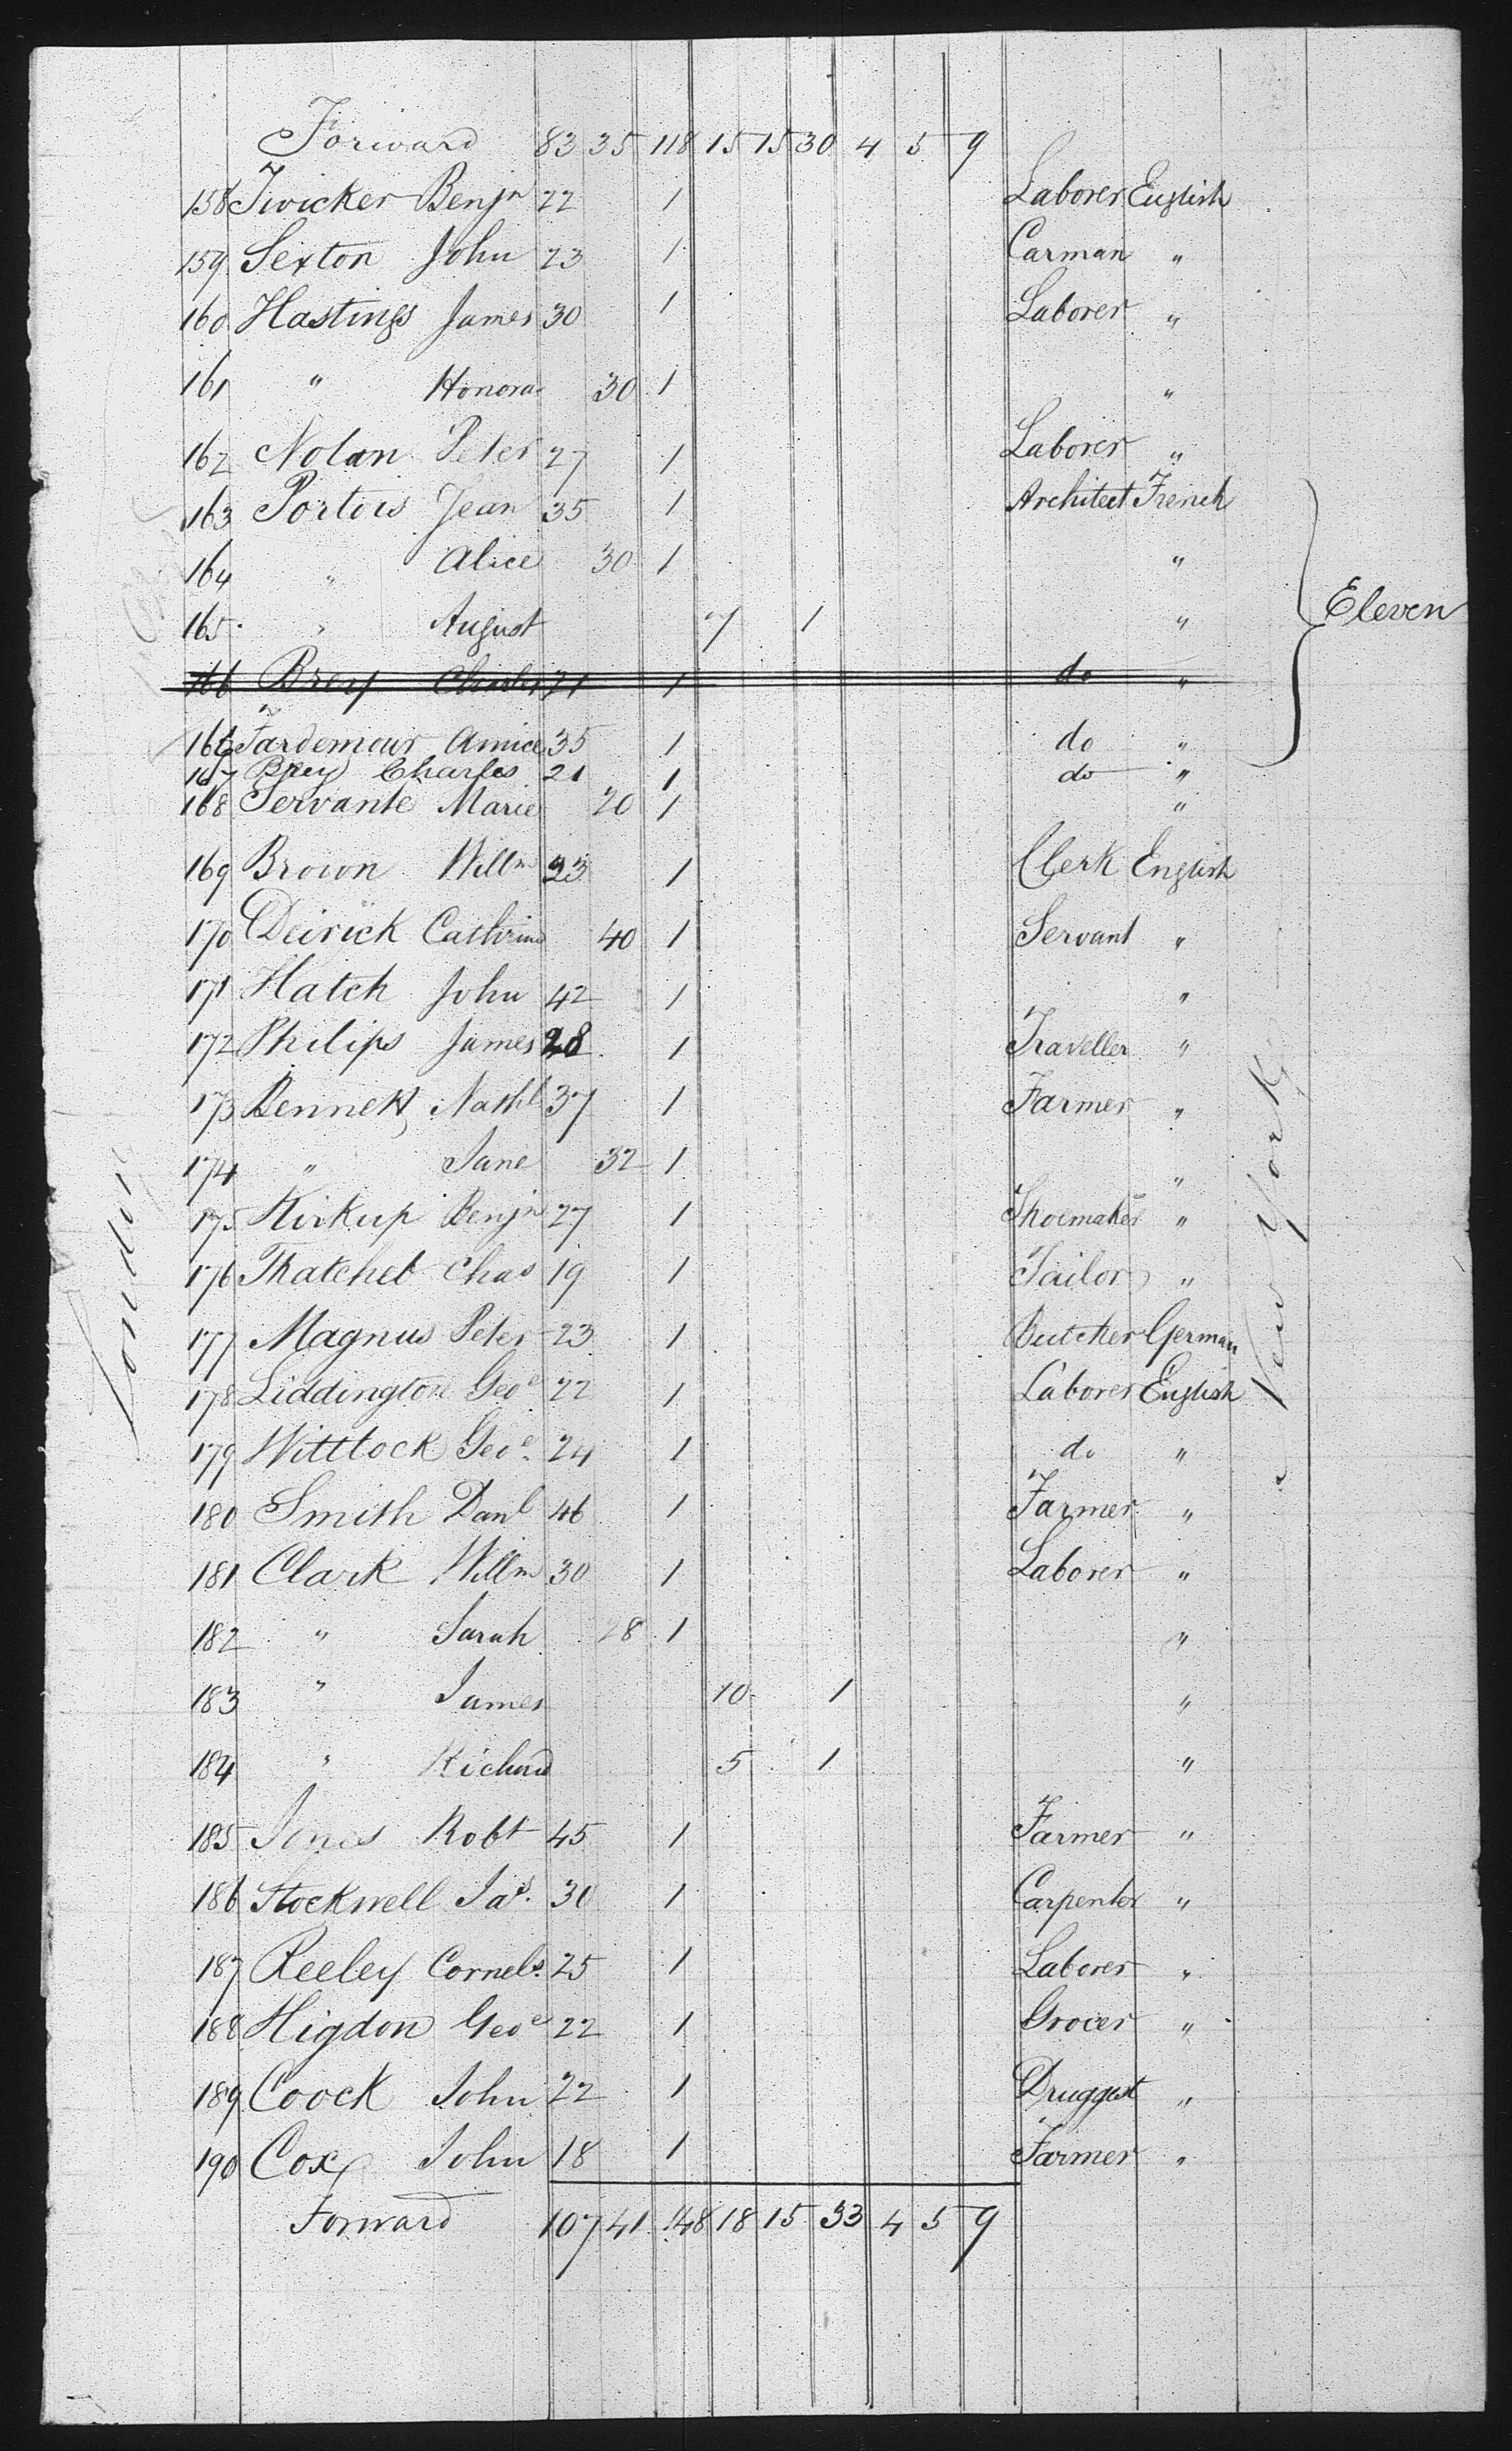 Forward 83 35 118 15 15 30 4 5 9
158 Twicker Benjn 22 1 Laborer English
159 Sexton John 23 1 Carman "
160 Hastings James 30 1 Laborer "
161 " Honora 30 1 "
162 Nolan Peter 27 1 Laborer "
163 Portois Jean 35 1 Architect French
164 " Alice 30 1 "
165 " August 7 1 "
Eleven
166 Brey Charles 21 1 do "
166 Tardemour Amice 35 1 do "
167 Brey Charles 21 1 do "
168 Servante Marie 20 1 "
169 Brown Willm 23 1 Clerk English
170 Deirick Cathrine 40 1 Servant "
171 Hatch John 42 1 "
172 Philips James 28 1 Traveller "
173 Bennett Nathl 37 1 Farmer "
174 " Jane 32 1 "
175 Kirkup Benjn 27 1 Shoemaker "
176 Thatcher Chas 19 1 Tailor "
177 Magnus Peter 23 1 Butcher German
178 Liddington Geoe 22 1 Laborer English
179 Wittlock Geoe 24 1 do "
180 Smith Danl 46 1 Farmer "
181 Clark Willm 30 1 Laborer "
182 " Sarah 28 1 "
183 " James 10 1 "
184 " Richard 5 1 "
185 Jones Robt 45 1 Farmer "
186 Stockwell Jas. 30 1 Carpenter "
187 Reeley Cornels. 25 1 Laborer "
188 Higdon Geoe 22 1 Grocer "
189 Coock John 22 1 Druggest "
190 Cox John 18 1 Farmer "
Forward 107 41 148 18 15 33 4 5 9
London
New York